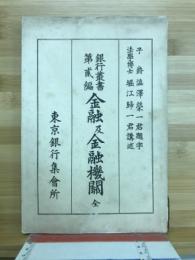 子爵澁澤榮一君題字
法學博士堀江歸一君講述
銀行叢書第貳編
金融及金融機關 全
東京銀行集會所